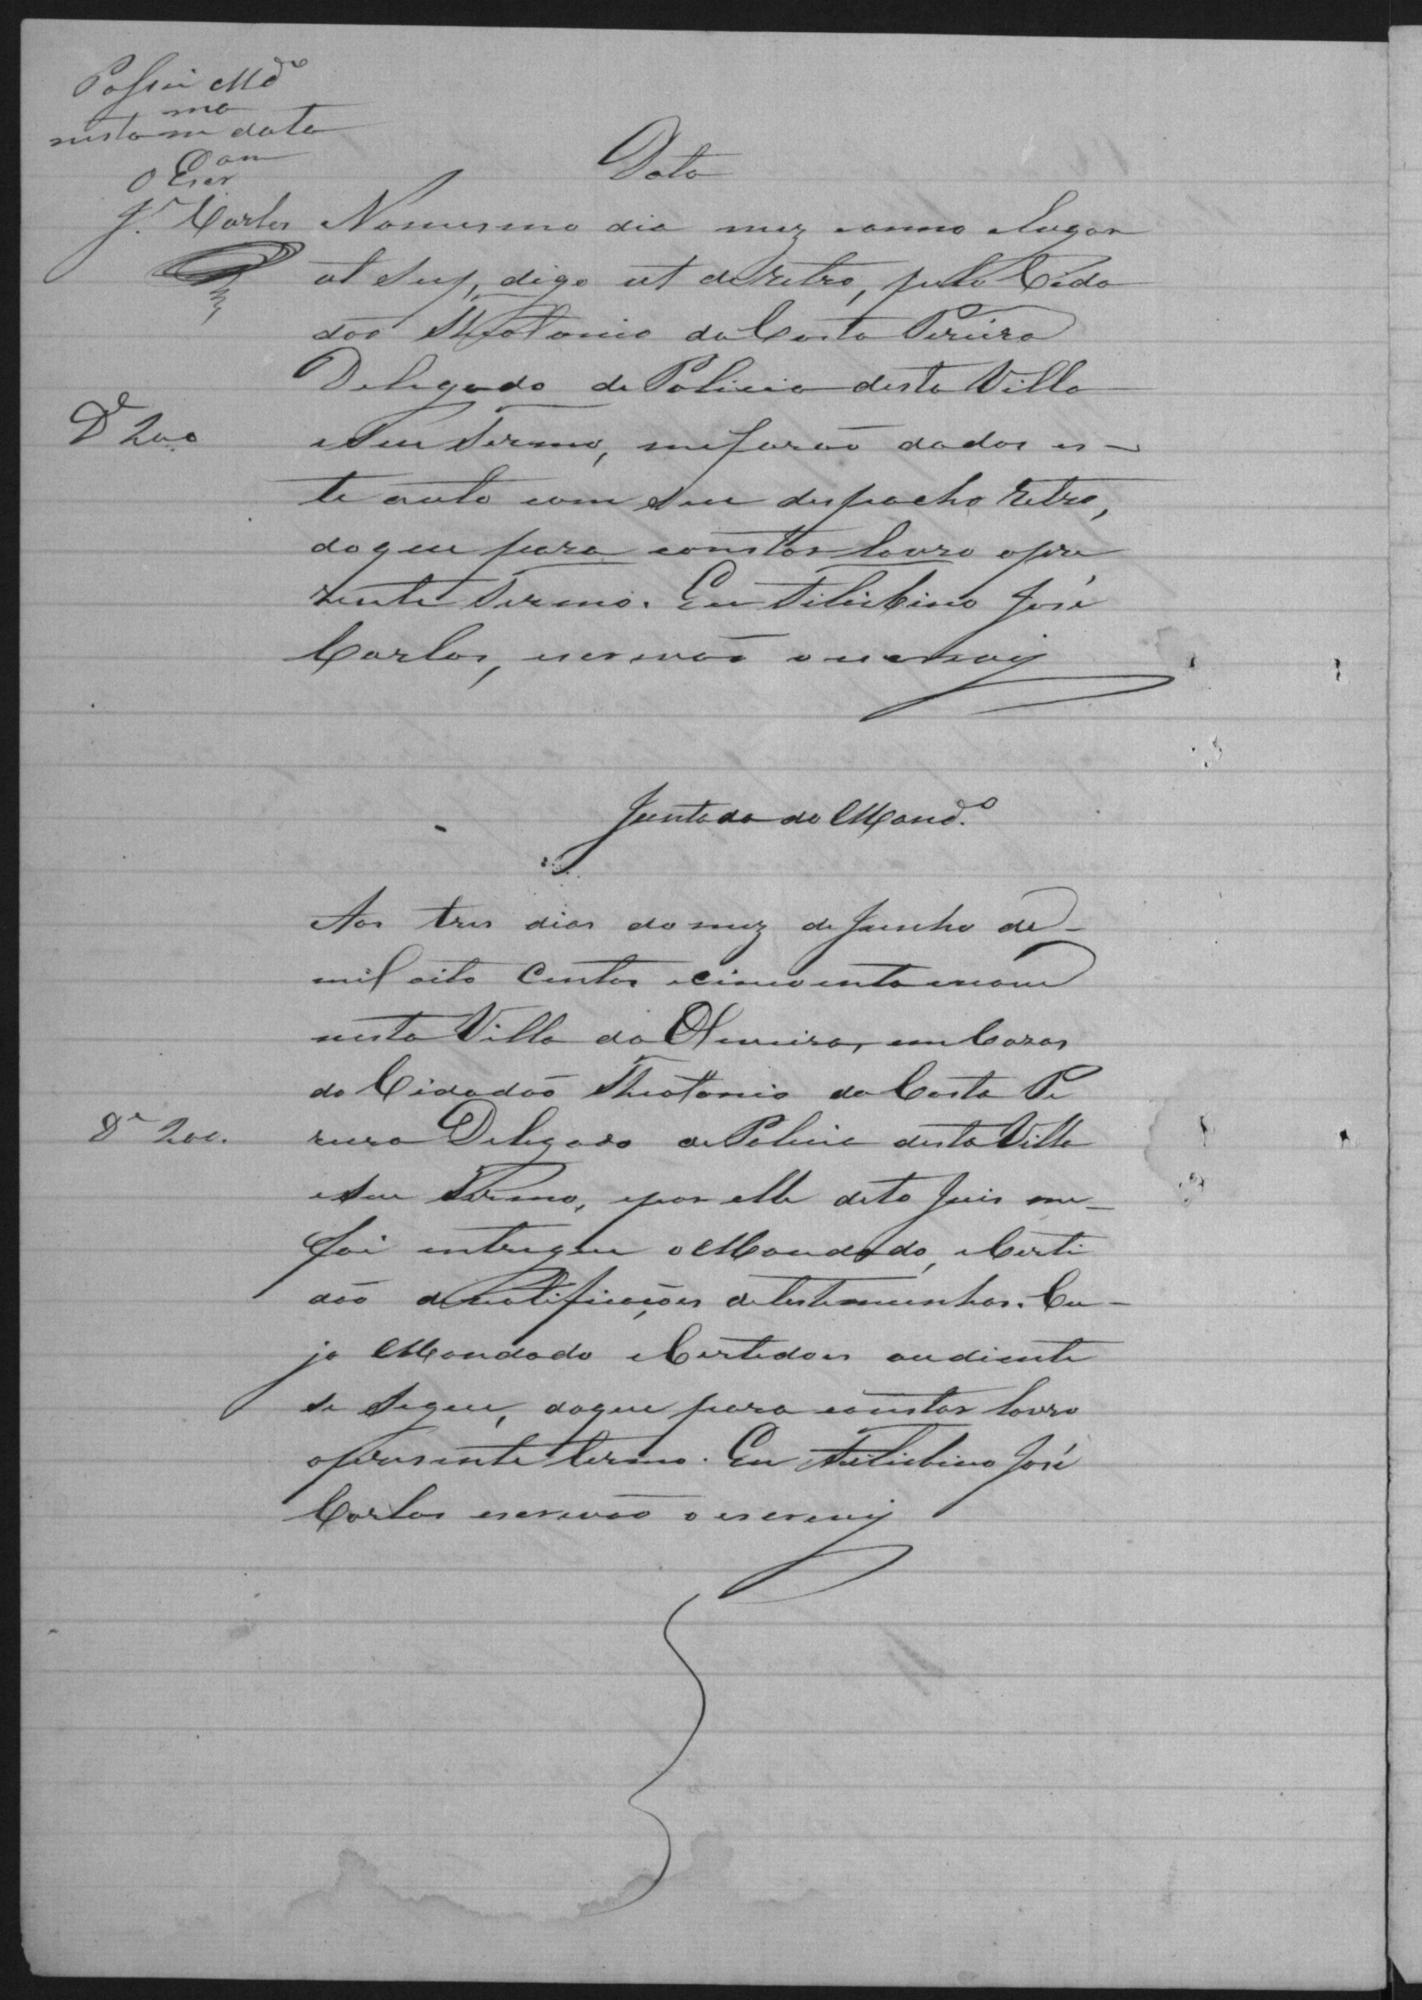 Passei Md.º
nesta m.ma data
O Escr.am
J. Carlos
Data
No mesmo dia mez e anno e lugar
ut sup, digo ut de retro, pelo Cida
dão Theotonio da Costa Pereira
Delegado de Policia desta Villa
D. 200
e seu Termo, me forão dados es-
te auto com seu despacho retro,
do que para constar lavro o pre
zente termo. Eu Filisbino José
Carlos, escrivão o escrevy
Juntada do Mand.º
Aos tres dias do mez de Junho de
mil oito centos e cincoenta e nove
nesta Villa da Oliveira, em Cazas
do Cidadão Theotonio da Costa Pe
D. 200.
reira Delegado de Policia desta Villa
e seu Termo, e por elle dito Juis me
foi entregue o Mandado, e Certi
dão de notificações de testemunhas. Cu-
jo Mandado e Certidões ao diente
se segue, do que para constar lavro
o presente termo. Eu Filisbino José
Carlos escrivão o escrevy